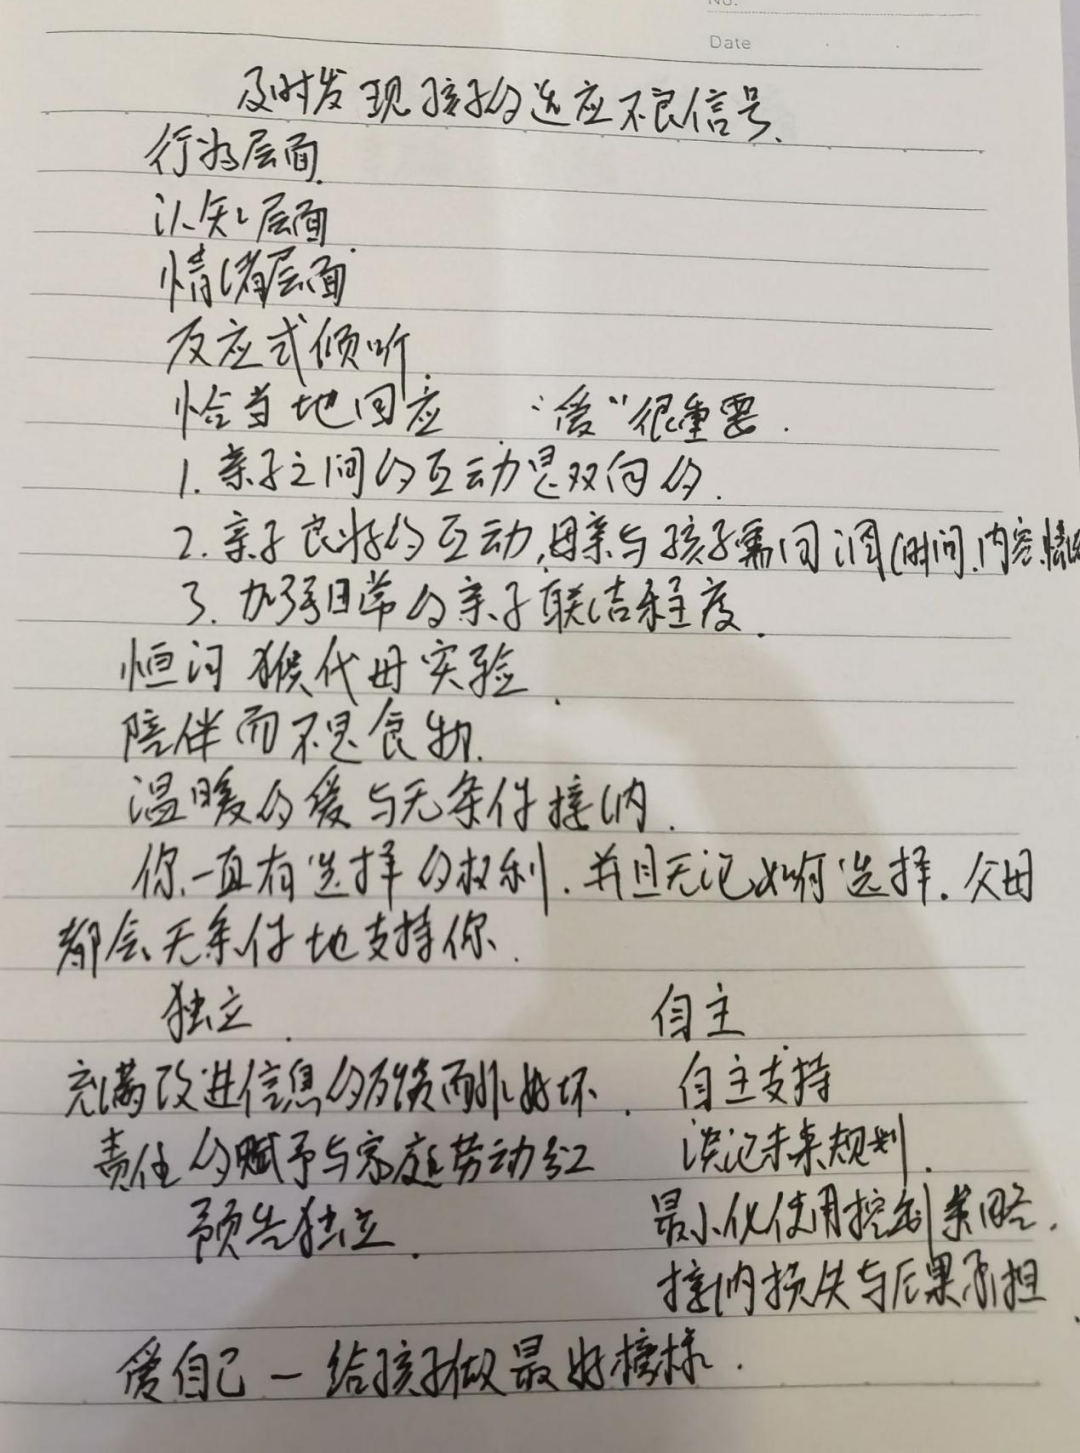 No.
Date
及时发现孩子的适应不良信号.
行为层面.
认知层面.
情绪层面
反应式倾听.
恰当地回应 “爱”很重要.
1. 亲子之间的互动是双向的.
2. 亲子良好的互动,母亲与孩子需同调(时间.内容.情
3. 加强日常的亲子联结程度.
恒河猴代母实验.
陪伴而不是食物.
温暖的爱与无条件接纳.
你一直有选择的权利.并且无论如何选择.父母
都会无条件地支持你.
独立. 自主
充满改进信息的反馈而非好坏. 自主支持
责任的赋予与家庭劳动分工 谈论未来规划.
预告独立. 最小化使用控制策略.
接纳损失与后果承担
爱自己 — 给孩子做最好榜样.